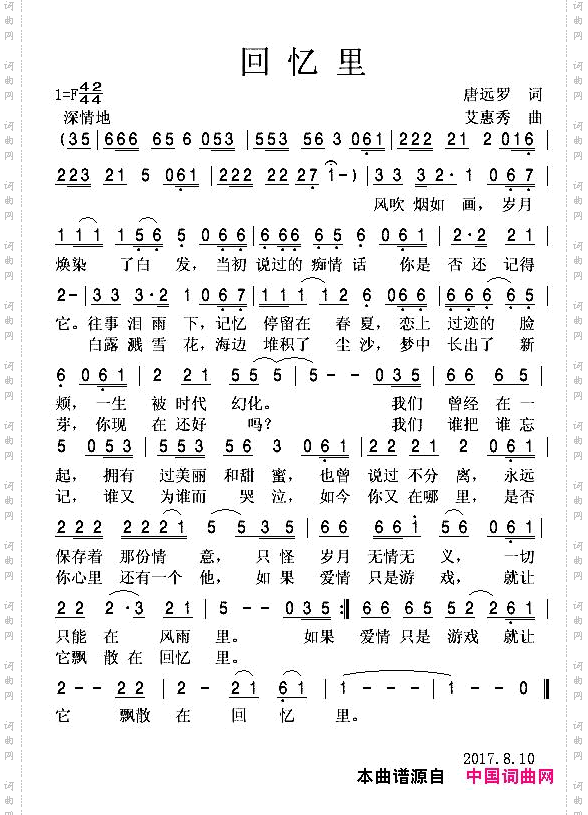 回忆里
1=F 42/44 唐远罗 词
深情地 艾惠秀 曲
(35 | 666 65 6 053 | 553 56 3 061 | 222 21 2 016 |
223 21 5 061 | 222 22 27 1-) | 33 32· 1 067 |
风吹 烟如 画， 岁月
111 156 5 066 | 6665 656 061 | 2·2 21 |
焕染 了白 发， 当初 说过的 痴情 话 你是 否还 记得
2- | 33 3·2 1 067 | 111 12 6 066 | 666 65 |
它。往事 泪雨 下，记忆 停留在 春夏，恋上 过迹的 脸
白露 溅雪 花，海边 堆积了 尘沙，梦中 长出了 新
6 061 | 2 21 555 | 5-- 035 | 665 35 |
颊， 一生 被 时代 幻化。 我们 曾经 在一
芽，你现 在 还好 吗？ 我们 谁把 谁忘
5 053 | 553 56 3 061 | 222 32 2 061 |
起， 拥有 过美丽 和甜 蜜，也曾 说过 不分 离，永远
记， 谁又 为谁而 哭泣，如今 你又 在哪 里，是否
222 2221 5 535 | 66 665 5652 061 |
保存着 那份情 意， 只怪 岁月 无情无 义， 一切
你心里 还有一个 他， 如果 爱情 只是游 戏， 就让
222 2·3 215 | 5-- 035 :| 66 665 52 261 |
只能 在 风雨 里。 如果 爱情 只是 游戏 就让
它飘 散在 回忆 里。
2-- 22 | 2-22 2 61 | 1--- | 1--0 ‖
它 飘散 在 回 忆 里。
2017.8.10
本曲谱源自 中国词曲网
词曲网